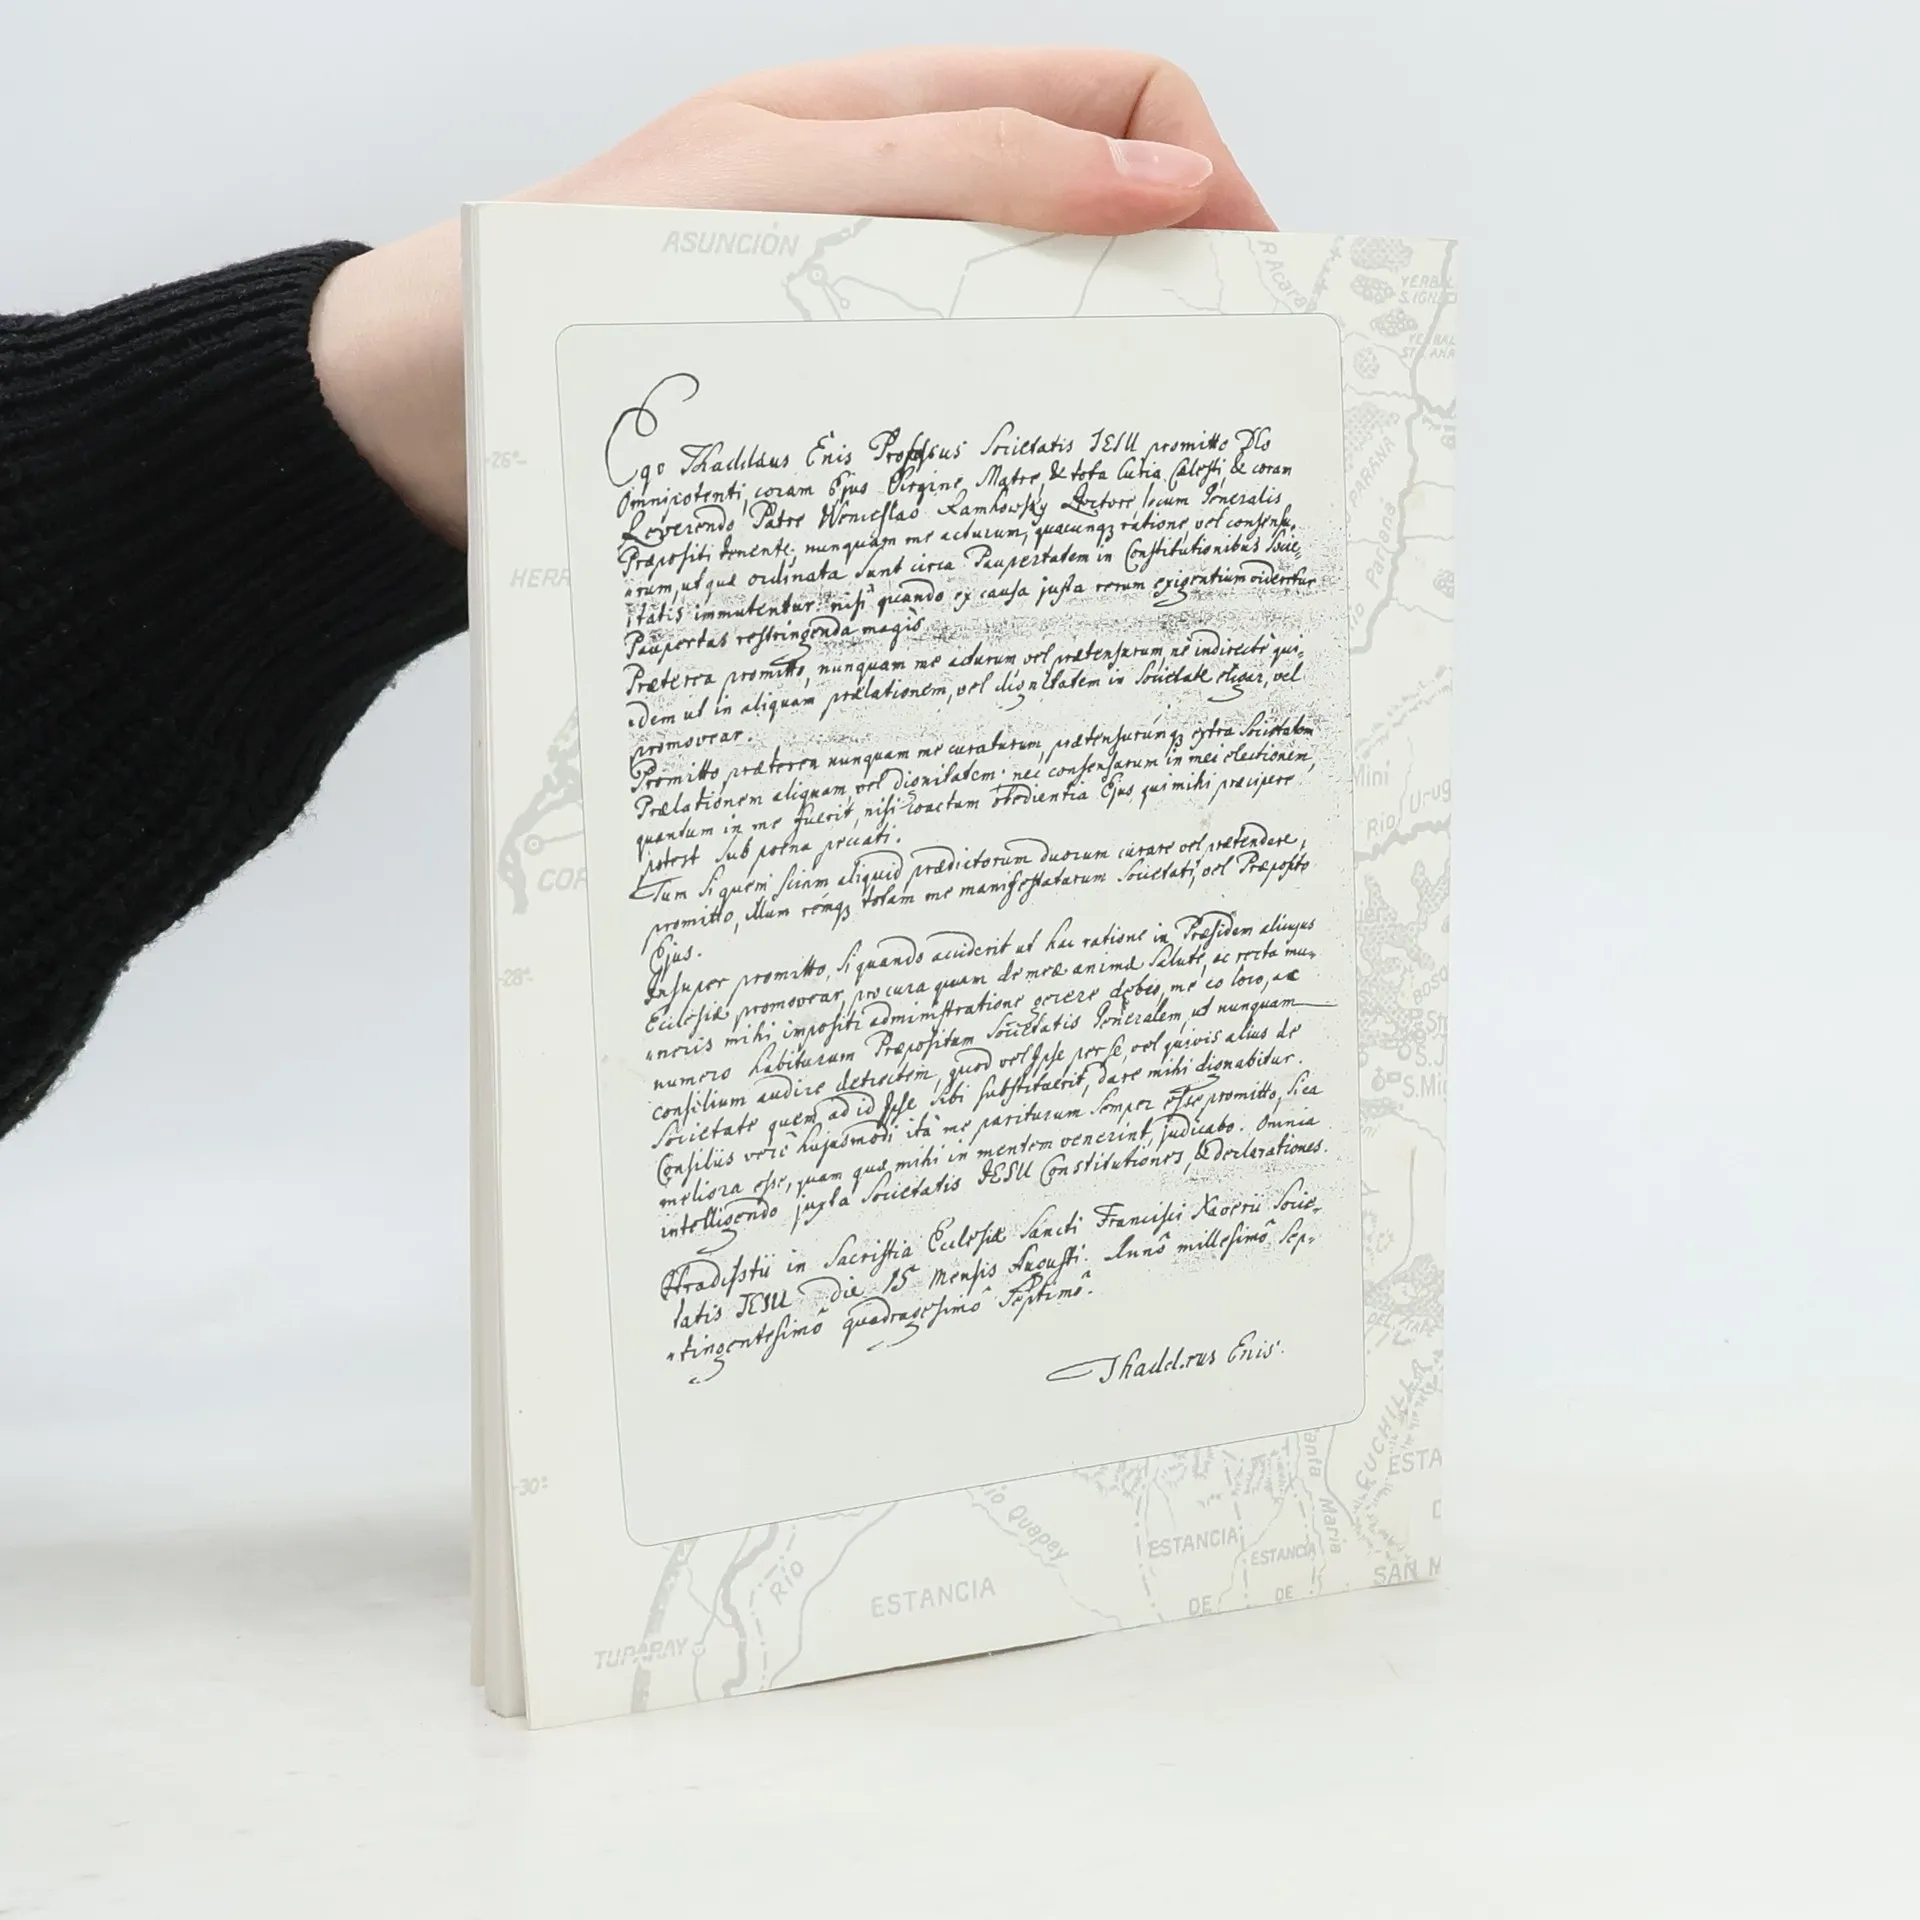 ASUNCIÓN
R Acara
YERBAL
S. IGNA
YERBAL
STA ANA
PARANA
Rio Pariana
26°
HERR
28°
30°
Ego Thaddæus Enis Professus Societatis JESU promitto Dẽo
Omnipotenti, coram Ejus Virgine Matre, & tota Curia Cælesti, & coram
Reverendo Patre Wenceslao Kamkowsky Rectore locum Generalis
Præpositi tenente; nunquam me acturum, quacunq; ratione, vel consensu-
„rum, ut quæ ordinata sunt circa Paupertatem in Constitutionibus Socie-
„tatis immutentur: nisi quando ex causa justa rerum exigentium videretur
Paupertas restringenda magis.
Præterea promitto, nunquam me acturum vel prætensurum, ne indirectè qui-
„dem ut in aliquam prælationem, vel dignitatem in Societate eligar, vel
promovear.
Promitto præterea nunquam me curaturum, prætensurumq; extra Societatem
Prælationem aliquam, vel dignitatem: nec consensurum in mei electionem,
quantum in me fuerit, nisi coactum obedientia Ejus, qui mihi præcipere
potest sub pœna peccati.
Tum si quem sciam aliquid prædictorum duorum curare vel prætendere,
promitto, illum remq; totam me manifestaturum Societati, vel Præposito
Ejus.
Insuper promitto, si quando acciderit ut hac ratione in Præsidem alicujus
Ecclesiæ promovear, pro cura quam de meæ animæ salute, ac recta mu-
„neris mihi impositi administratione gerere debeo, me eo loco, ac
numero habiturum Præpositum Societatis Generalem, ut nunquam
consilium audire detrectem, quod vel Ipse per se, vel quivis alius de
Societate quem ad id Ipse sibi substituerit, dare mihi dignabitur.
Consiliis verò hujusmodi ità me pariturum semper esse promitto, si ea
meliora esse, quam quæ mihi in mentem venerint, judicabo. Omnia
intelligendo juxta Societatis JESU Constitutiones, & declarationes.
Hradistii in Sacristia Ecclesiæ Sancti Francisci Xaverii Socie-
tatis JESU die 15 Mensis Augusti. Annô millesimô Sep-
„tingentesimô quadragesimô septimô.
Thaddæus Enis.
COR
Mini
Rio
Urug
S.J
S.Mig
CUCHILLA
ESTA
Rio Quapey
Santa Maria
ESTANCIA
ESTANCIA
ESTANCIA
DE
DE
SAN M
RIO
TUPARAY